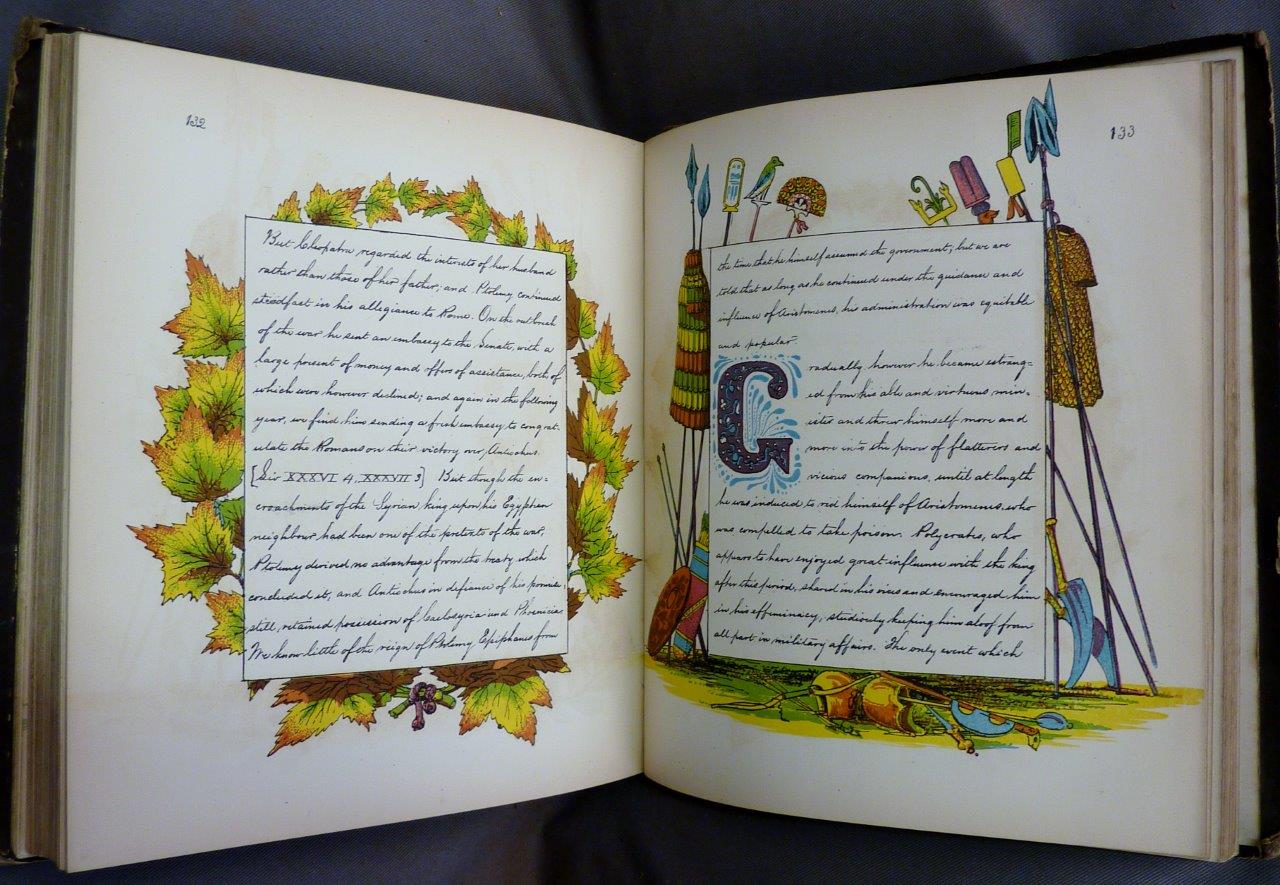 132
But Cleopatra regarded the interests of her husband
rather than those of her father; and Ptolemy continued
steadfast in his allegiance to Rome. On the outbreak
of the war he sent an embassy to the Senate, with a
large present of money and offers of assistance, both of
which were however declined; and again in the following
year, we find him sending a fresh embassy to congrat-
ulate the Romans on their victory over Antiochus.
[Liv XXXVI 4. XXXVII 3] But though the en=
croachments of the Syrian king upon his Egyptian
neighbour had been one of the pretexts of the war,
Ptolemy derived no advantage from the treaty which
concluded it, and Antiochus in defiance of his promise
still, retained possession of Coelosyria and Phoenicia
We know little of the reign of Ptolemy Epiphanes from
133
the time that he himself assumed the government; but we are
told that as long as he continued under the guidance and
influence of Aristomenes, his administration was equitable
and popular-
Gradually, however he became estrang=
ed from his able and virtuous min=
ister and threw himself more and
more into the power of flatterers and
vicious companions, until at length
he was induced to rid himself of Aristomenes, who
was compelled to take poison. Polycrates, who
appears to have enjoyed great influence with the king
after this period, shared in his vices and encouraged him
in his effeminacy, studiously keeping him aloof from
all part in military affairs. The only event which